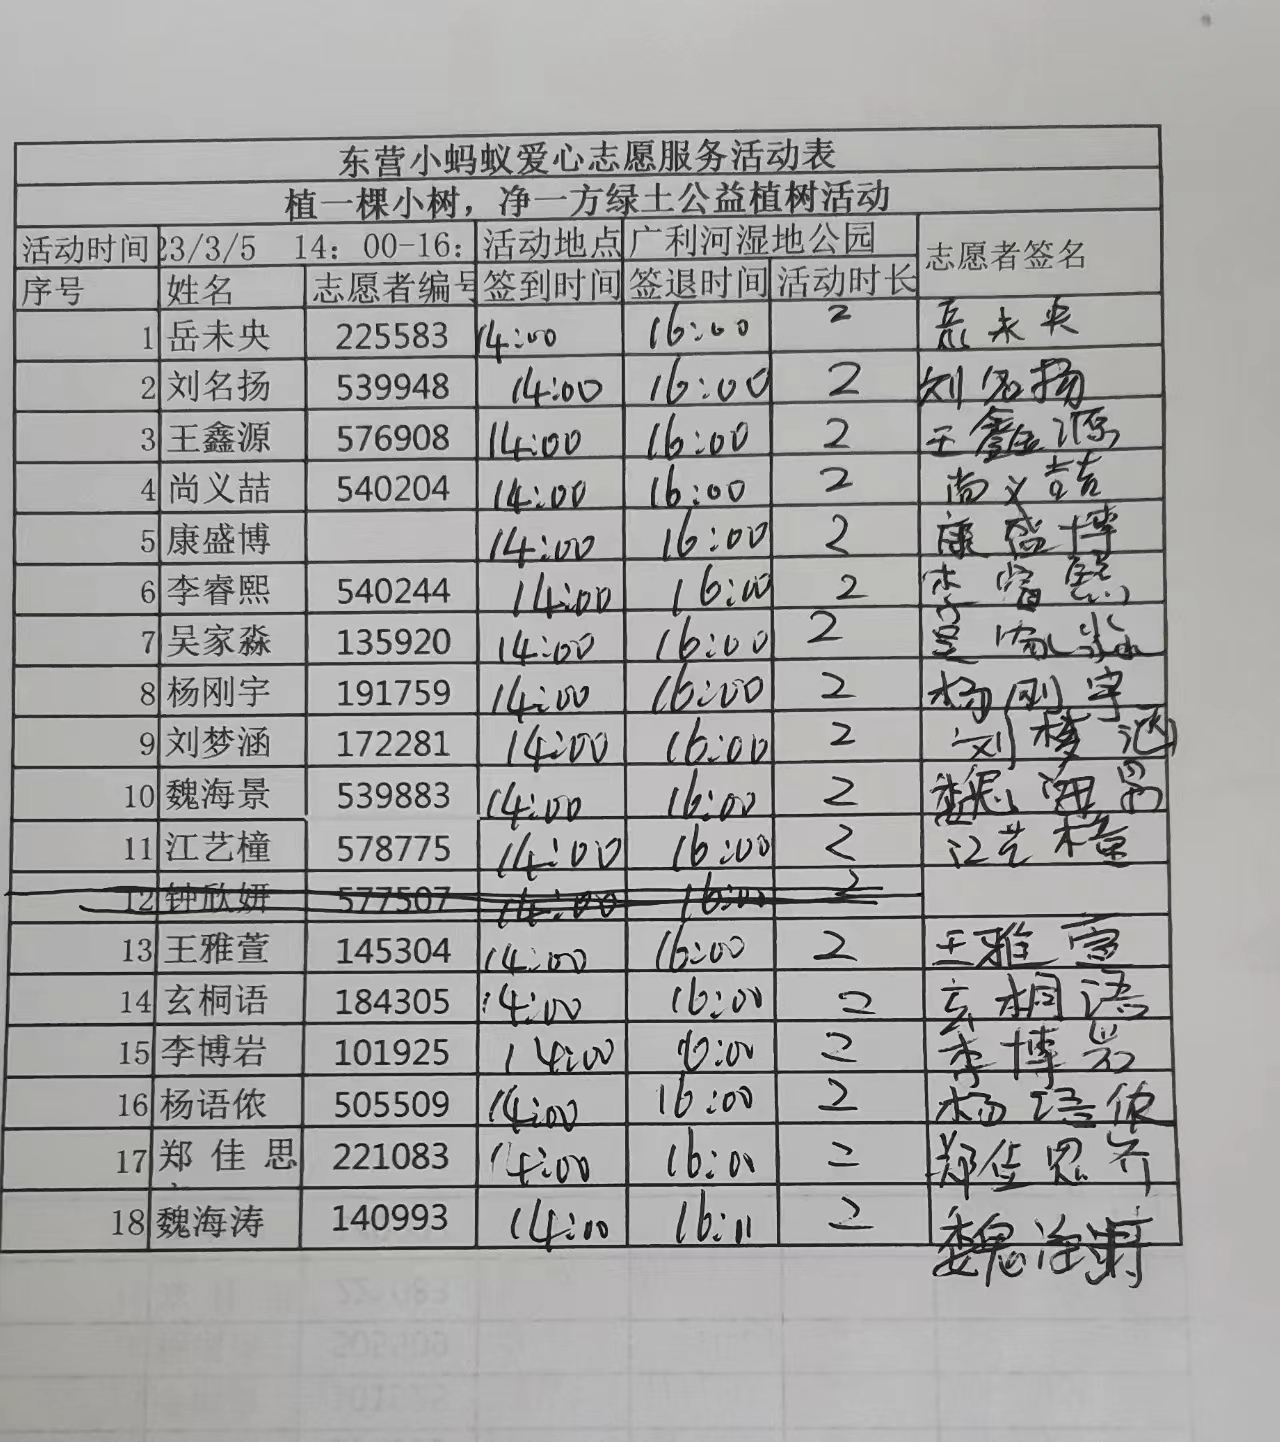 东营小蚂蚁爱心志愿服务活动表
植一棵小树，净一方绿土公益植树活动
活动时间 23/3/5 14：00-16： 活动地点 广利河湿地公园 志愿者签名
序号 姓名 志愿者编号 签到时间 签退时间 活动时长
1 岳未央 225583 14:00 16:00 2 岳未央
2 刘名扬 539948 14:00 16:00 2 刘名扬
3 王鑫源 576908 14:00 16:00 2 王鑫源
4 尚义喆 540204 14:00 16:00 2 尚义喆
5 康盛博 14:00 16:00 2 康盛博
6 李睿熙 540244 14:00 16:00 2 李睿熙
7 吴家淼 135920 14:00 16:00 2 吴家淼
8 杨刚宇 191759 14:00 16:00 2 杨刚宇
9 刘梦涵 172281 14:00 16:00 2 刘梦涵
10 魏海景 539883 14:00 16:00 2 魏海景
11 江艺橦 578775 14:00 16:00 2 江艺橦
12 钟欣妍 577507 14:00 16:00 2
13 王雅萱 145304 14:00 16:00 2 王雅萱
14 玄桐语 184305 14:00 16:00 2 玄桐语
15 李博岩 101925 14:00 16:00 2 李博岩
16 杨语侬 505509 14:00 16:00 2 杨语侬
17 郑佳思 221083 14:00 16:00 2 郑佳思齐
18 魏海涛 140993 14:00 16:00 2 魏海涛